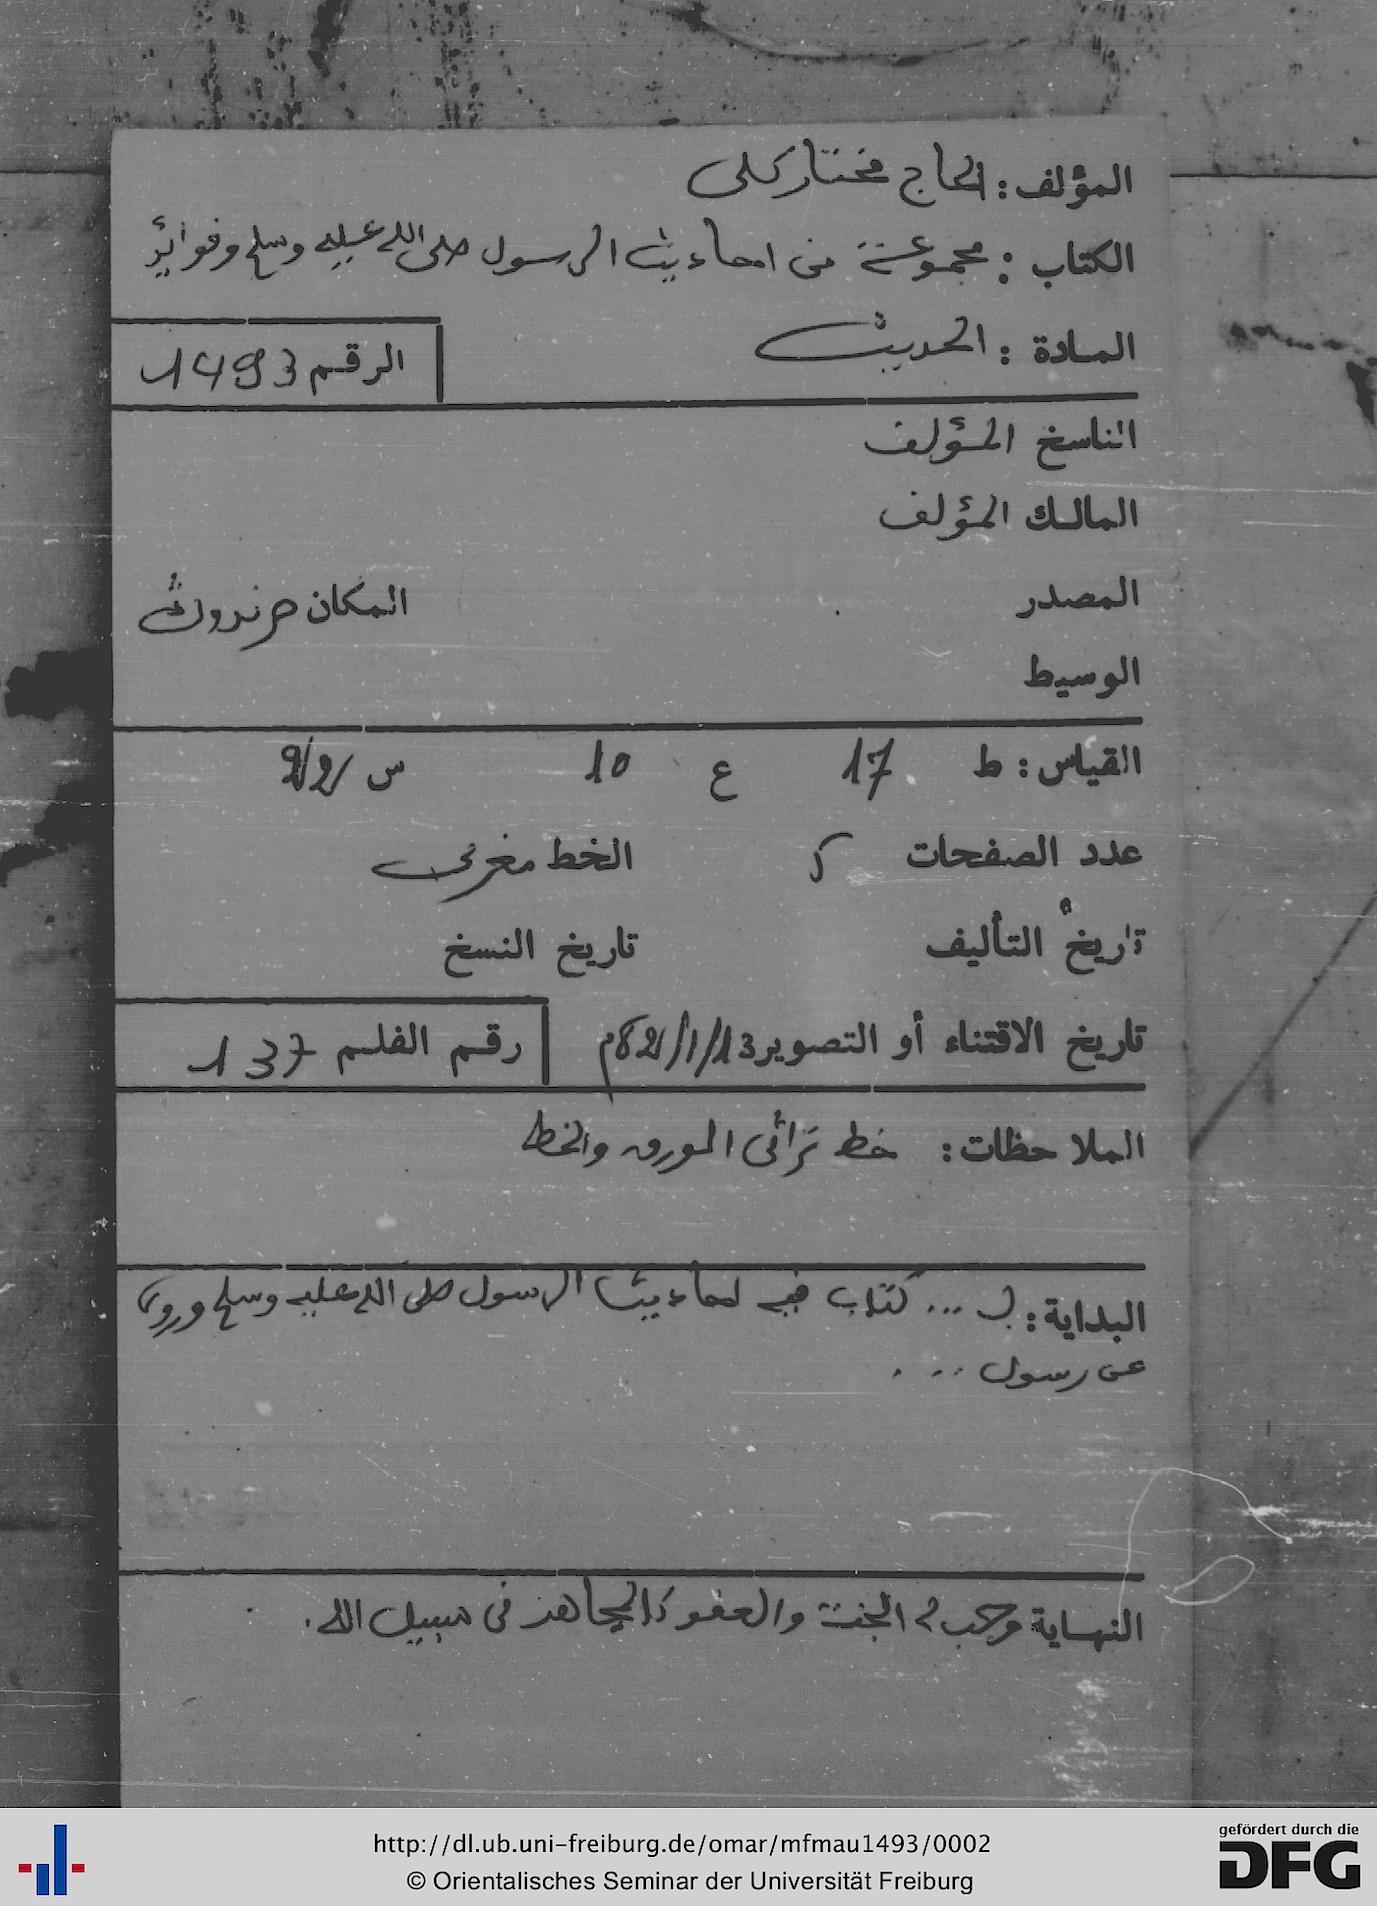 المؤلف : الحاج مختار كلى
الكتاب : مجموعة من احاديث الرسول صلى الله عليه وسلم وفوائد
المادة : الحديث
الرقم 1493
الناسخ المؤلف
المالك المؤلف
المصدر المكان
الوسيط
القياس : ط 17 ع 10 س
عدد الصفحات الخط مغربي
تاريخ التأليف تاريخ النسخ
تاريخ الاقتناء أو التصوير 13/1/82م رقم الفلم 137
الملاحظات : خط تراثى الورق والخط
البداية : ... كتاب فيه احاديث الرسول صلى الله عليه وسلم وروى
عن رسول ...
النهاية وجب له الجنة والعفو كالمجاهد فى سبيل الله .
http://dl.ub.uni-freiburg.de/omar/mfmau1493/0002
© Orientalisches Seminar der Universität Freiburg
gefördert durch die
DFG